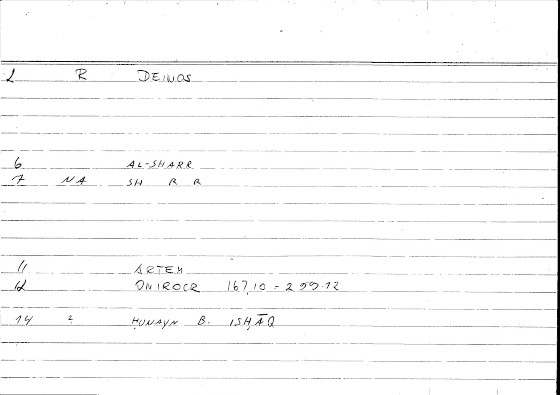 1 R DEINOS
6 AL-SHARR
7 NA SH R R
11 ARTEM
12 ONIROCR 167,10 - 299.12
14 2 ḤUNAYN B. ISḤĀQ